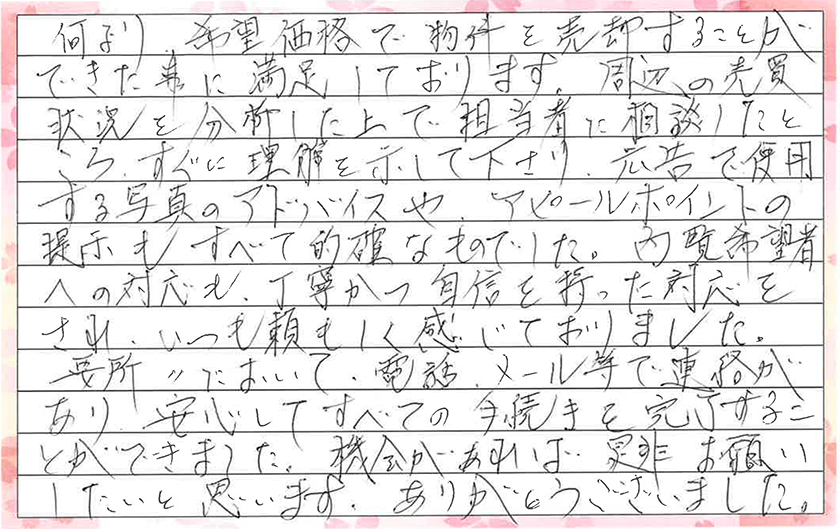 何より、希望価格で物件を売却することが
できた事に満足しております。周辺の売買
状況を分析した上で担当者に相談したと
ころ、すぐに理解を示して下さり、広告で使用
する写真のアドバイスや、アピールポイントの
提示もすべて的確なものでした。内覧希望者
への対応も、丁寧かつ自信を持った対応を
され、いつも頼もしく感じておりました。
要所〃において、電話、メール等で連絡が
あり、安心してすべての手続きを完了するこ
とができました。機会があれば是非お願い
したいと思います。ありがとうございました。